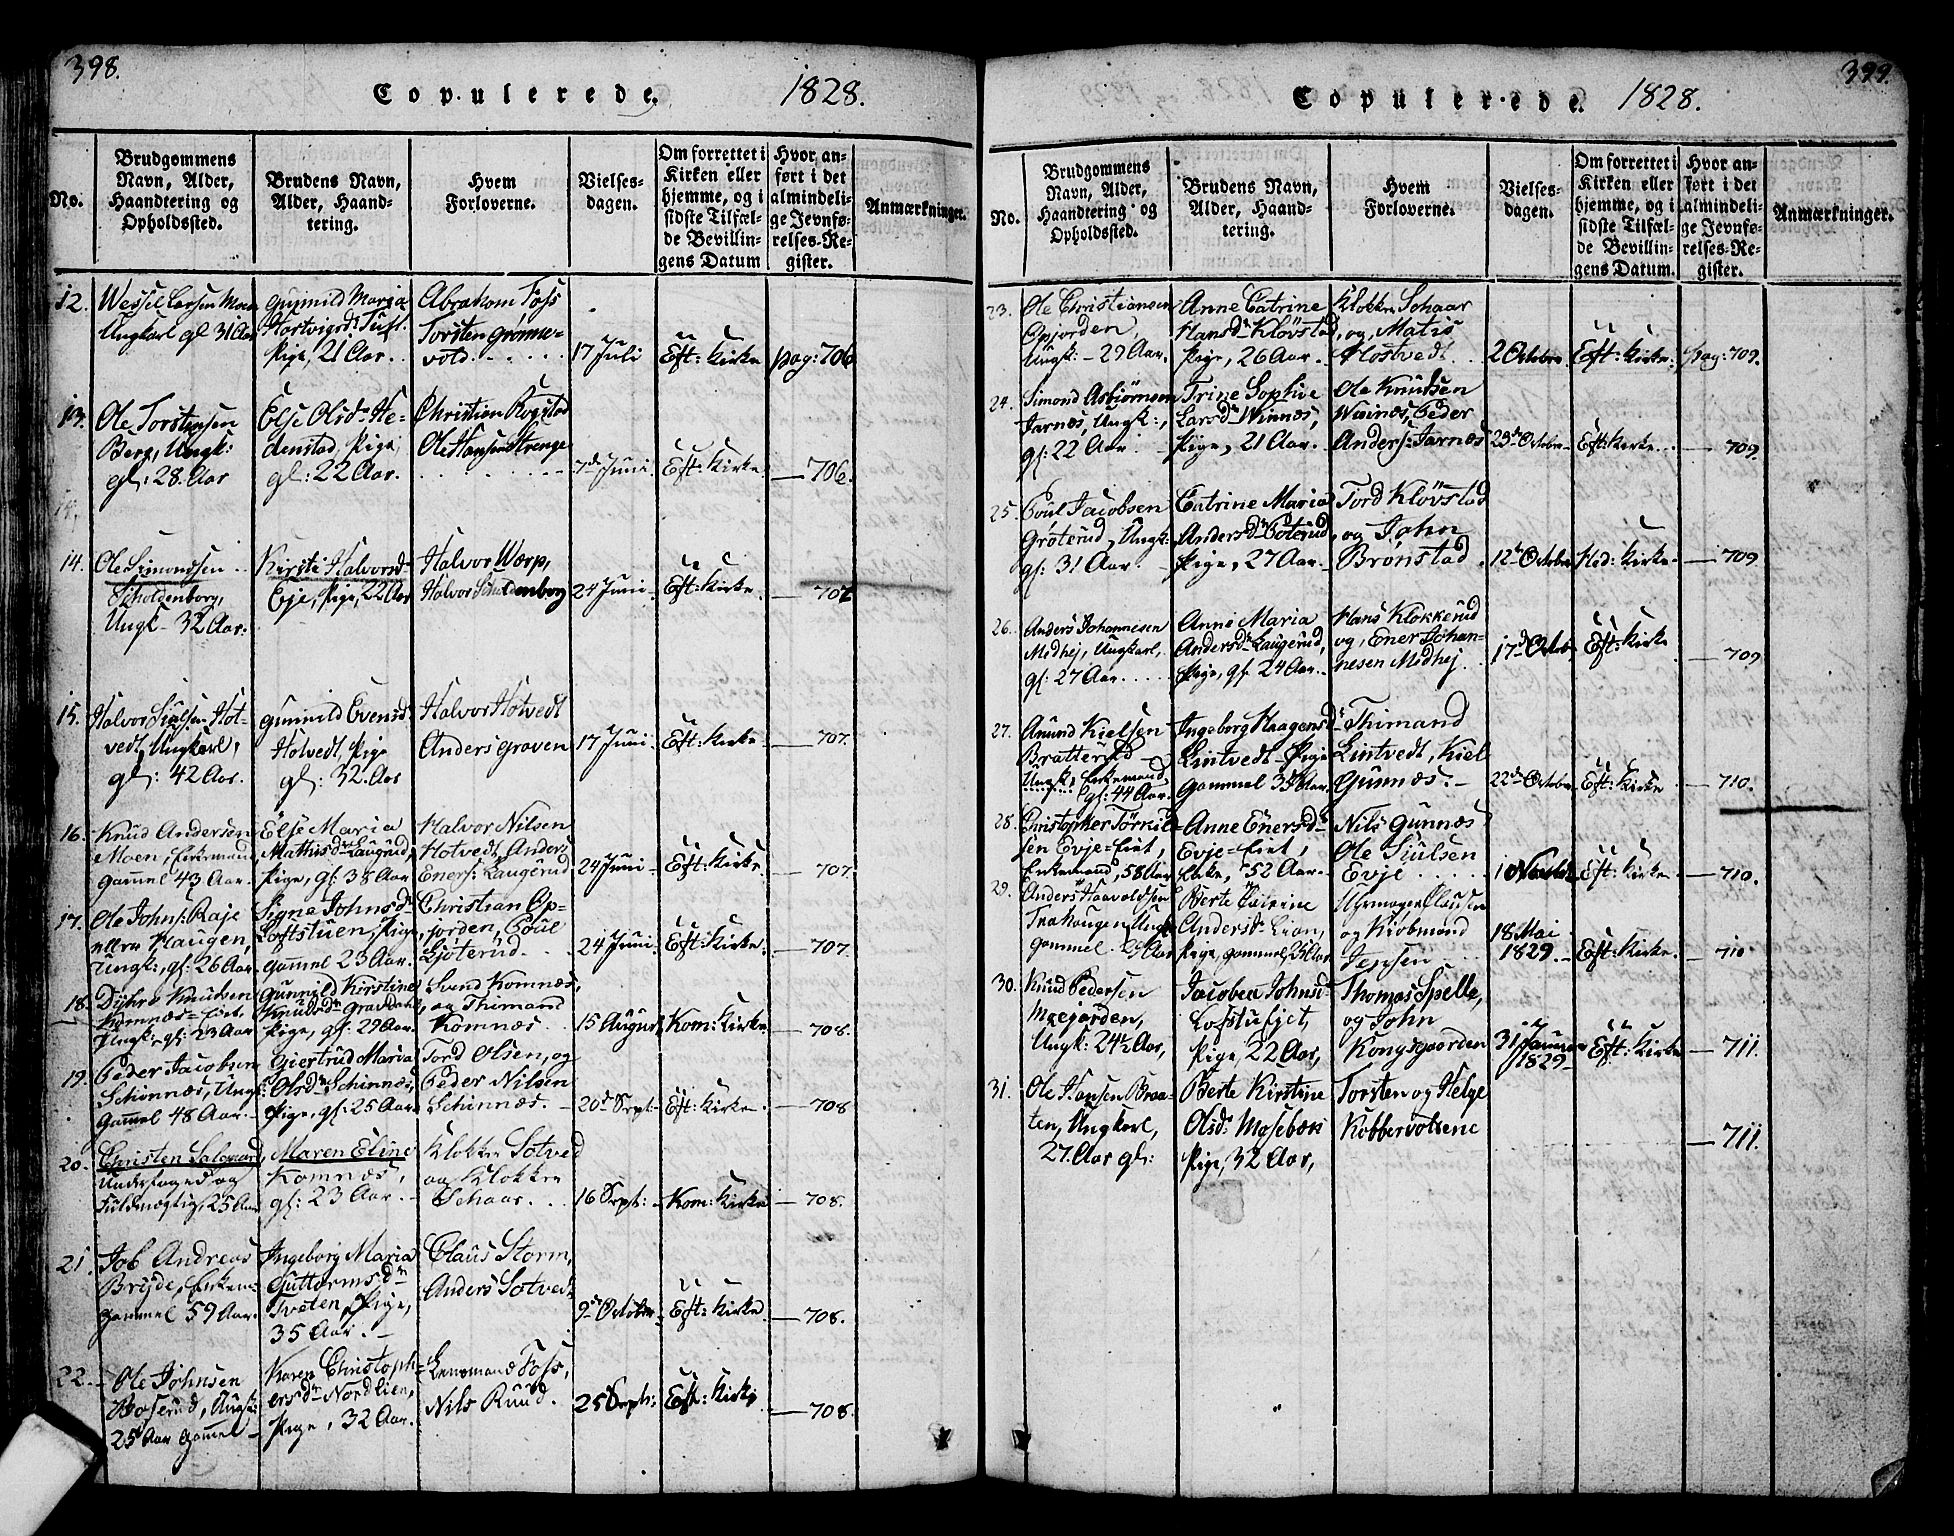 398.
Copulerede. 1828.
No.
Brudgommens
Navn, Alder,
Haandtering og
Opholdssted.
Brudens Navn,
Alder, Haand-
tering.
Hvem
Forloverne.
Vielses-
dagen.
Om forrettet i
Kirken eller
hjemme, og i
sidste Tilfæl-
de Bevillin-
gens Datum
Hvor an-
ført i det
almindeli-
ge Jevnfø-
relses-Re-
gister.
Anmærkninger.
12.
Wessel Larsen Moen
Ungkarl gl 31 Aar
Gunnild Maria
Hartvigsd:
Pige, 21 Aar.
Abraham Foss
Torsten Grønne-
vold.
17 Juli
Eft: Kirke
pag: 706
13.
Ole Torstensen
Berg, Ungk:
gl: 28. Aar
Else Olsd: He-
denstad, Pige
gl: 22 Aar.
Christian Rogstad
Ole Hansen Strenge
7de Juni
Eft: Kirke
— 706.
14.
Ole Simonssen
Skoldenborg,
Ungk- 32 Aar.
Kirsti Halvorsd
Evje, Pige, 22 Aar
Halvor Wærp,
Halvor Skoldenborg
24 Juni
Eft: Kirke.
15.
Halvor Hot-
vedt, Ungkarl,
gl: 42 Aar.
Gunnild Evensd.
Hotvedt, Pige
gl: 32. Aar
Halvor Hotvedt
Anders Graven
17 Juni
Eft: Kirke
— 707.
16.
Knud Andersen
Moen, Enkemand
Gammel 43 Aar.
Else Maria
Mathisdr Laugerud,
Pige, gl: 38 Aar
Halvor Nilsen
Hotvedt, Anders
Eners: Laugerud
24 Juni
Eft: Kirke
— 707.
17.
Ole Johns: Raje
ellers Haugen,
Ungk:, gl: 26 Aar
Signe Johnsdr
Loftstuen, Pige,
gammel 23 Aar.
Christian Op-
jorden, Poul
24 Juni
Eft: Kirke.
— 707.
18.
Knudsen
Komnæs-Eiet,
Ungk, gl: 23 Aar
Gunnild Kirstine
Knudsdr Gravdahl,
Pige, gl: 29 Aar.
Svend Komnæs,
og Thimand
Komnæs.
15 August
Kom: Kirke
— 708.
19.
Peder Jacobsen
Schinnæs, Ungk:
Gammel 48 Aar.
Giertrud Maria
Olsdr Schinnæs,
Pige, gl: 25 Aar
Tord Olsen, og
Peder Nilsen
Schinnæs.
20de Sept:
Eft: Kirke.
— 708
20.
Christen
Underfoged og
Fuldmægtig, 25 Aar
Maren Eline
Komnæs,
gl: 23 Aar.
Klokker Sotved
og Klokker
Schaar.
16 Sept:
Kom: Kirke
— 708.
21.
Job Andreas
Bryde, Enkem:
gammel 59 Aar.
Ingeborg Maria
Guttormsdr
Tveten, Pige,
35 Aar.
Claus Storm,
Anders Sotved
9de October
Eft: Kirke
— 708.
22.
Ole Johnsen
Ungk:
25 Aar Gammel
Karen Christoph-
ersdr Nordlien,
Pige, 32 Aar.
Lensmand Foss,
Nils Ruud.
25 Sept:
Eft: Kirke
— 708.
399.
Copulerede. 1828.
No.
Brudgommens
Navn, Alder,
Haandtering og
Opholdssted.
Brudens Navn,
Alder, Haand-
tering.
Hvem
Forloverne.
Vielses-
dagen.
Om forrettet i
Kirken eller
hjemme, og i
sidste Tilfæl-
de Bevillin-
gens Datum.
Hvor an-
ført i det
almindeli-
ge Jevnfø-
relses-Re-
gister.
Anmærkninger.
23.
Ole Christiansen
Opjorden
Ungk:- 29 Aar.
Anne Catrine
Hansdr Kløvstad,
Pige, 26 Aar.
Klokker Schaar
og, Matis
Hostvedt
2 October
Eft: Kirke.
Pag: 709.
24.
Simond Asbjørnsen
Jarnæs, Ungk:,
gl: 22 Aar
Trine Sophie
Larsdr Winnæs,
Pige, 21 Aar.
Ole Knudsen
Winnæs, Peder
Anders: Jarnæs
23de October
Eft: Kirke.
— 709.
25.
Poul Jacobsen
Grøterud, Ungk:
gl: 31 Aar.
Catrine Maria
Andersdr Poterud
Pige, 27 Aar.
Tord Kløvstad
og John
Brønstad
12te October
Hed: Kirke
— 709
26.
Anders Johannesen
Medhej, Ungkarl,
gl: 27 Aar.
Anne Maria
Andersdr Laugerud,
Pige, gl. 24 Aar.
Hans Klokkerud
og, Ener Johan-
nesen Medhej
17de Octobr
Eft: Kirke
— 709
27.
Anund Kielsen
Bratterud
Ungk: Enkemand,
gl: 44 Aar.
Ingeborg Haagensdr
Lintvedt Pige
Gammel 35 Aar.
Thimand
Lintvedt, Kiel
Gunnæs.
22de October
Eft: Kirke
— 710.
28.
Christopher Tørkil-
sen Evje-Eiet,
Enkemand, 58 Aar
Anne Enersdr
Evje-Eiet,
Enke, 52 Aar.
Nils Gunnæs
Ole Siulsen
Evje
Eft: Kirke
— 710.
29.
Anders Haavoldsen
Ungk
Gammel
Berte Catrine
Andersd: Lien,
Pige, gammel
Clausen
og Kiøbmand
Jensen
18 Mai
1829.
Eft: Kirke.
— 710
30.
Knud Pedersen
Moegorden,
Ungk: 24½ Aar,
Jacobea Johnsd-
Pige, 22 Aar,
Thomas Spelle,
og John
Kongsgaarden
31te Januar
1829
Eft: Kirke
— 711.
31.
Ole Hansen Braa-
ten, Ungkarl,
27. Aar gl:
Berte Kirstine
Olsd: Mosebæk
Pige, 32 Aar,
Torsten og Helge
Kobbervolsene
— 711.